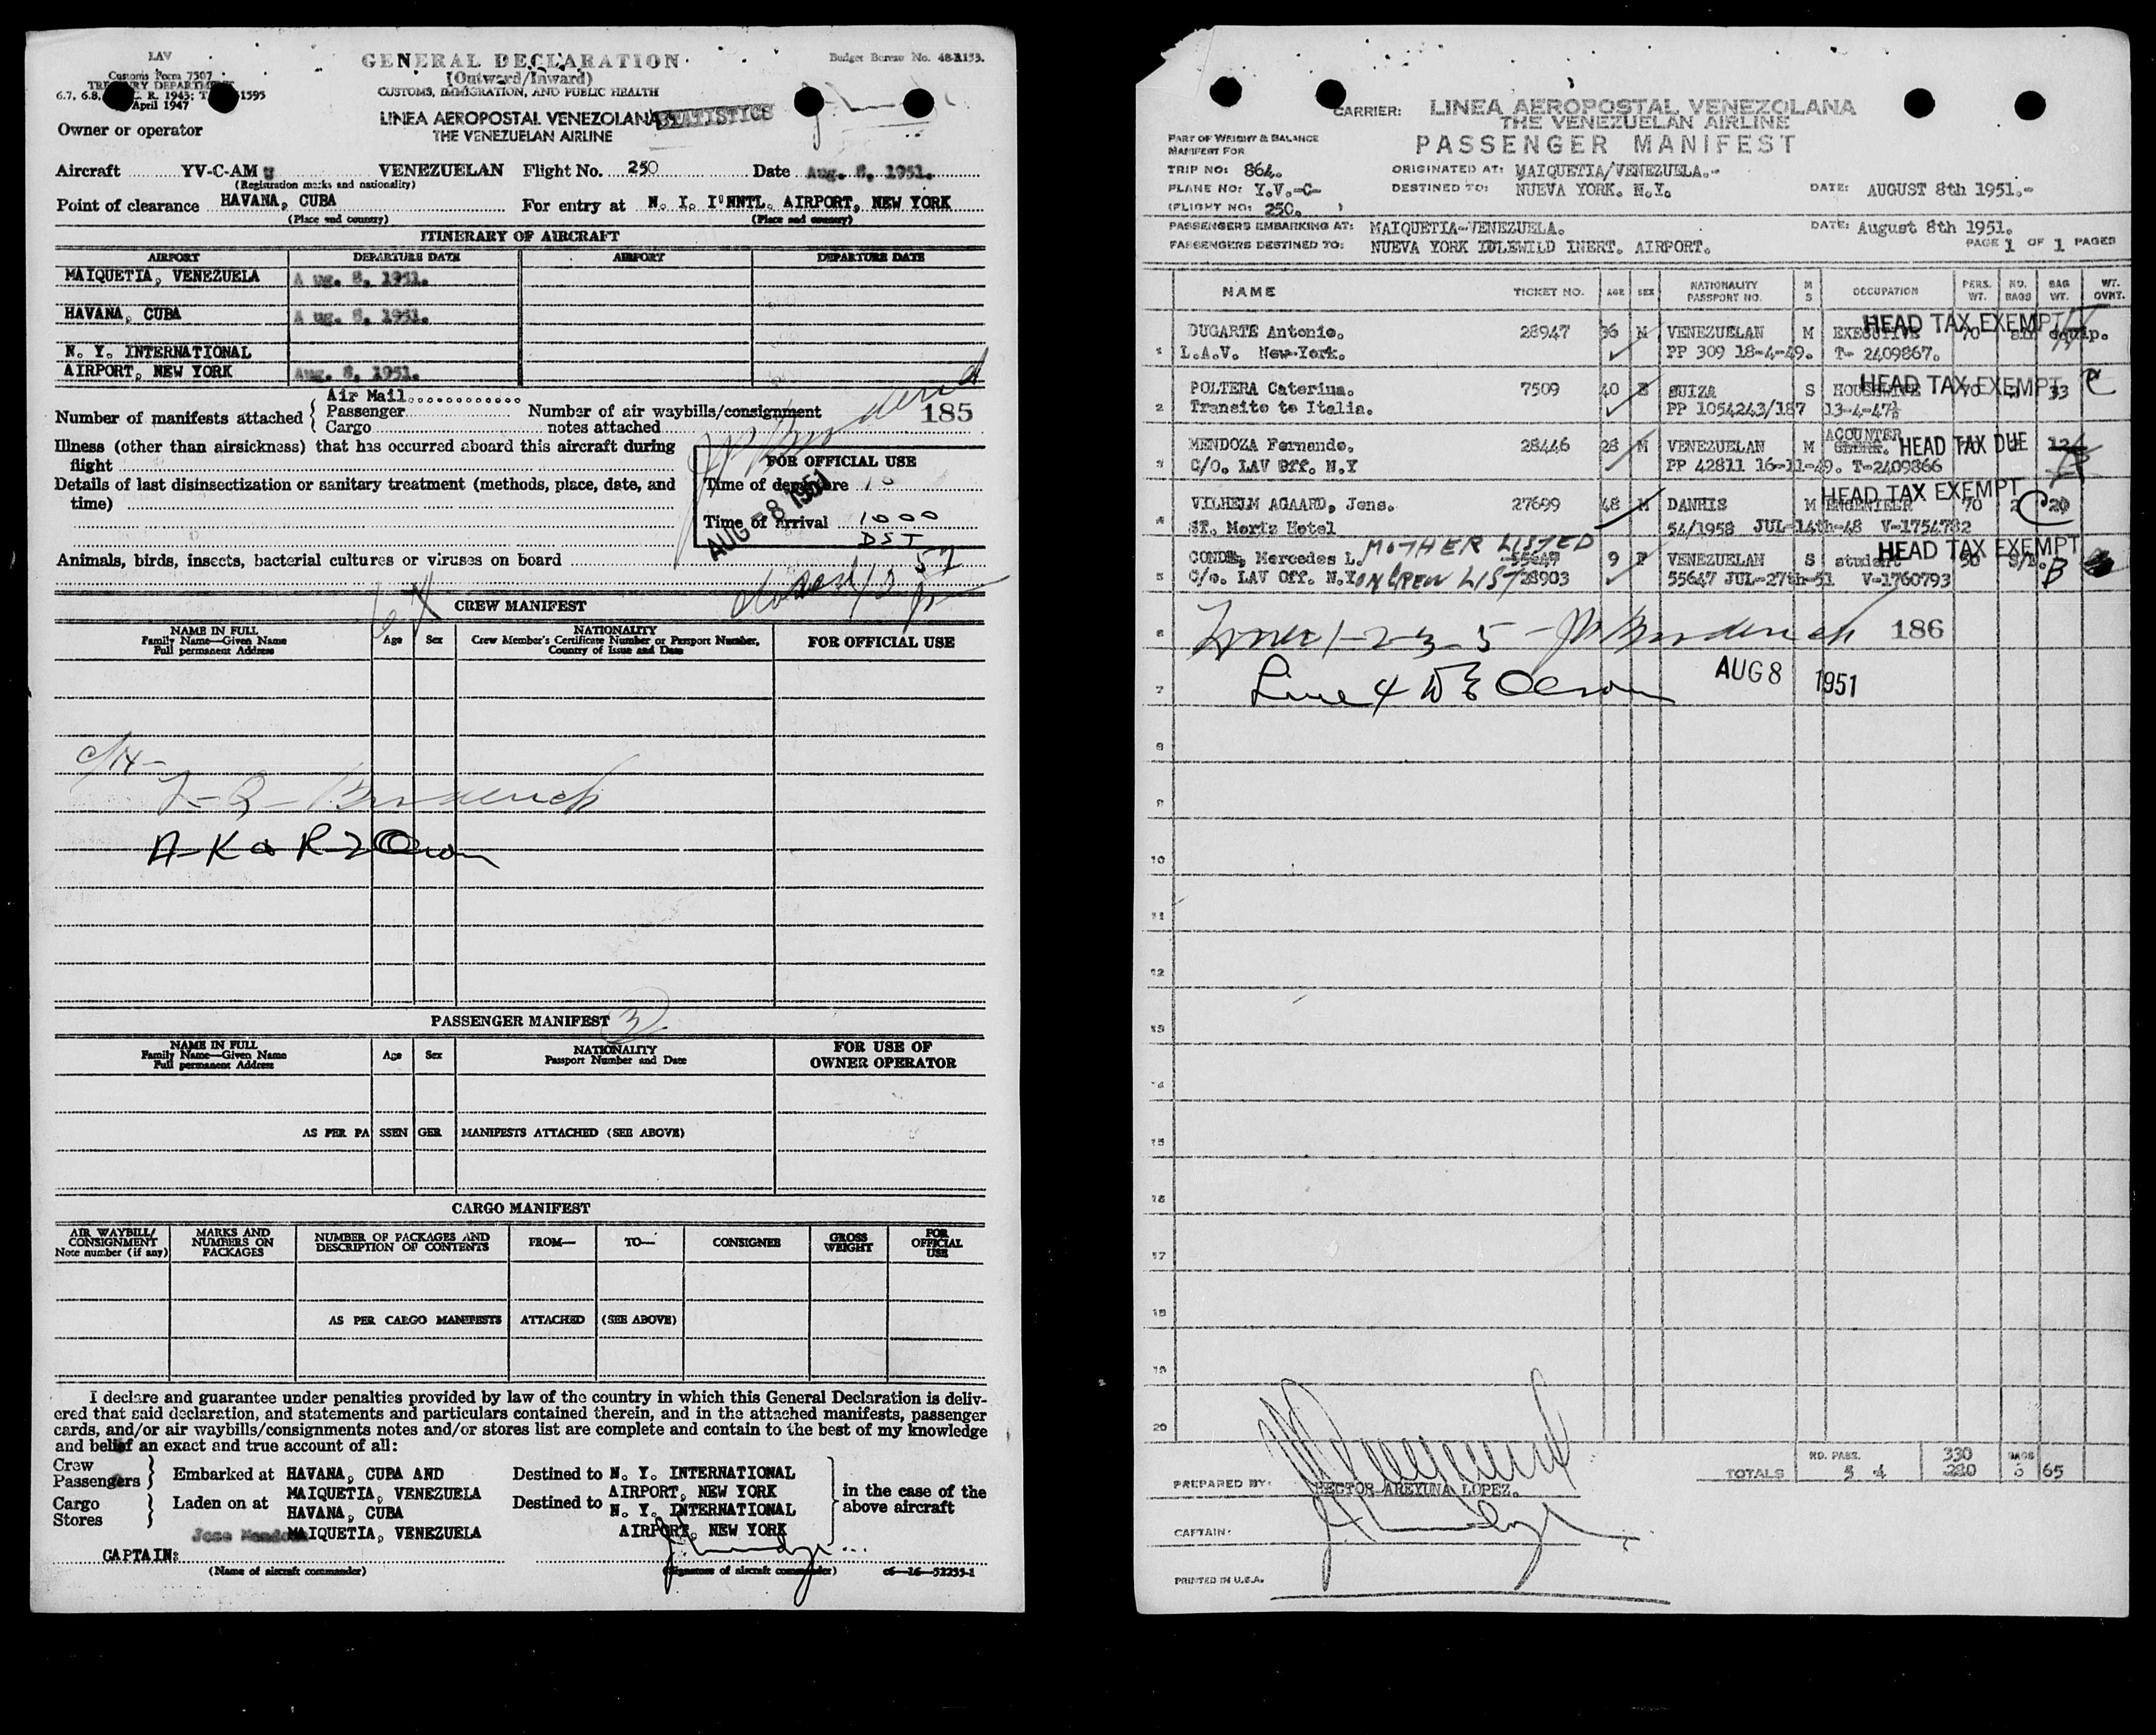 LAV
Customs Form 7507
TREASURY DEPARTMENT
April 1947
GENERAL DECLARATION
(Outward/Inward)
CUSTOMS, IMMIGRATION, AND PUBLIC HEALTH
LINEA AEROPOSTAL VENEZOLANA
THE VENEZUELAN AIRLINE
STATISTICS
Budget Bureau No. 48-R133.
Owner or operator
Aircraft YV-C-AM VENEZUELAN Flight No. 250 Date Aug. 8, 1951.
(Registration marks and nationality)
Point of clearance HAVANA, CUBA For entry at N. Y. I'NNTL. AIRPORT, NEW YORK
(Place and country) (Place and country)
ITINERARY OF AIRCRAFT
AIRPORT DEPARTURE DATE AIRPORT DEPARTURE DATE
MAIQUETIA, VENEZUELA A ug. 8, 1951.
HAVANA, CUBA A ug. 8, 1951.
N. Y. INTERNATIONAL
AIRPORT, NEW YORK Aug. 8, 1951.
Number of manifests attached
Air Mail
Passenger
Cargo
Number of air waybills/consignment
notes attached
185
Illness (other than airsickness) that has occurred aboard this aircraft during
flight
Details of last disinsectization or sanitary treatment (methods, place, date, and
time)
FOR OFFICIAL USE
Time of departure
Time of arrival 1000
DST
AUG -8 1951
Animals, birds, insects, bacterial cultures or viruses on board
CREW MANIFEST
NAME IN FULL
Family Name—Given Name
Full permanent Address
Age Sex
NATIONALITY
Crew Member's Certificate Number or Passport Number,
Country of Issue and Date
FOR OFFICIAL USE
PASSENGER MANIFEST
3
NAME IN FULL
Family Name—Given Name
Full permanent Address
Age Sex
NATIONALITY
Passport Number and Date
FOR USE OF
OWNER OPERATOR
AS PER PA SSEN GER MANIFESTS ATTACHED (SEE ABOVE)
CARGO MANIFEST
AIR WAYBILL/
CONSIGNMENT
Note number (if any)
MARKS AND
NUMBERS ON
PACKAGES
NUMBER OF PACKAGES AND
DESCRIPTION OF CONTENTS
FROM— TO— CONSIGNEE
GROSS
WEIGHT
FOR
OFFICIAL
USE
AS PER CARGO MANIFESTS ATTACHED (SEE ABOVE)
I declare and guarantee under penalties provided by law of the country in which this General Declaration is deliv-
ered that said declaration, and statements and particulars contained therein, and in the attached manifests, passenger
cards, and/or air waybills/consignments notes and/or stores list are complete and contain to the best of my knowledge
and belief an exact and true account of all:
Crew
Passengers
Embarked at HAVANA, CUBA AND
MAIQUETIA, VENEZUELA
Destined to N. Y. INTERNATIONAL
AIRPORT, NEW YORK
Cargo
Stores
Laden on at HAVANA, CUBA
MAIQUETIA, VENEZUELA
Destined to N. Y. INTERNATIONAL
AIRPORT, NEW YORK
in the case of the
above aircraft
Jose Mendoza
CAPTAIN:
(Name of aircraft commander) (Signature of aircraft commander) c6—16—52255-1
CARRIER: LINEA AEROPOSTAL VENEZOLANA
THE VENEZUELAN AIRLINE
PASSENGER MANIFEST
PART OF WEIGHT & BALANCE
MANIFEST FOR
TRIP NO: 864. ORIGINATED AT: MAIQUETIA/VENEZUELA.-
PLANE NO: Y.V.-C- DESTINED TO: NUEVA YORK. N.Y. DATE: AUGUST 8th 1951.-
(FLIGHT NO: 250. )
PASSENGERS EMBARKING AT: MAIQUETIA-VENEZUELA. DATE: August 8th 1951.
PASSENGERS DESTINED TO: NUEVA YORK IDLEWILD INERT. AIRPORT. PAGE 1 OF 1 PAGES
NAME TICKET NO. AGE SEX NATIONALITY PASSPORT NO. M S OCCUPATION PERS. WT. NO. BAGS BAG WT. WT. OVNT.
DUGARTE Antonio. 28947 36 M VENEZUELAN M EXECUTIVE 70 equip.
HEAD TAX EXEMPT
1 L.A.V. New-York. PP 309 18-4-49. T- 2409867.
POLTERA Caterina. 7509 40 SUIZA S HOUSEWIFE 70 33
HEAD TAX EXEMPT C
2 Transito to Italia. PP 1054243/187 13-4-47
MENDOZA Fernando. 28446 28 M VENEZUELAN M ACOUNTER
HEAD TAX DUE
3 C/O. LAV Off. N.Y PP 42811 16-11-49. T-2409866
VILHELM AGAARD, Jens. 27699 48 M DANHIS M ENGENIEER 70 2 20
HEAD TAX EXEMPT C
4 ST. Moritz Hotel 54/1958 JUL-14th-48 V-1754782
MOTHER LISTED
CONDE, Mercedes L. 55647 9 F VENEZUELAN S student 50 S/E.
HEAD TAX EXEMPT
ON CREW LIST
5 C/o. LAV Off. N.Y 28903 55647 JUL-27th-51 V-1760793 B
6 Lines 1-2-3-5 - 186
7 Line 4 AUG 8 1951
8
9
10
11
12
13
14
15
16
17
18
19
20
NO. PASS. 330 BAGS
TOTALS 5 4 280 3 65
PREPARED BY: HECTOR AREYUNA LOPEZ.
CAPTAIN:
PRINTED IN U.S.A.